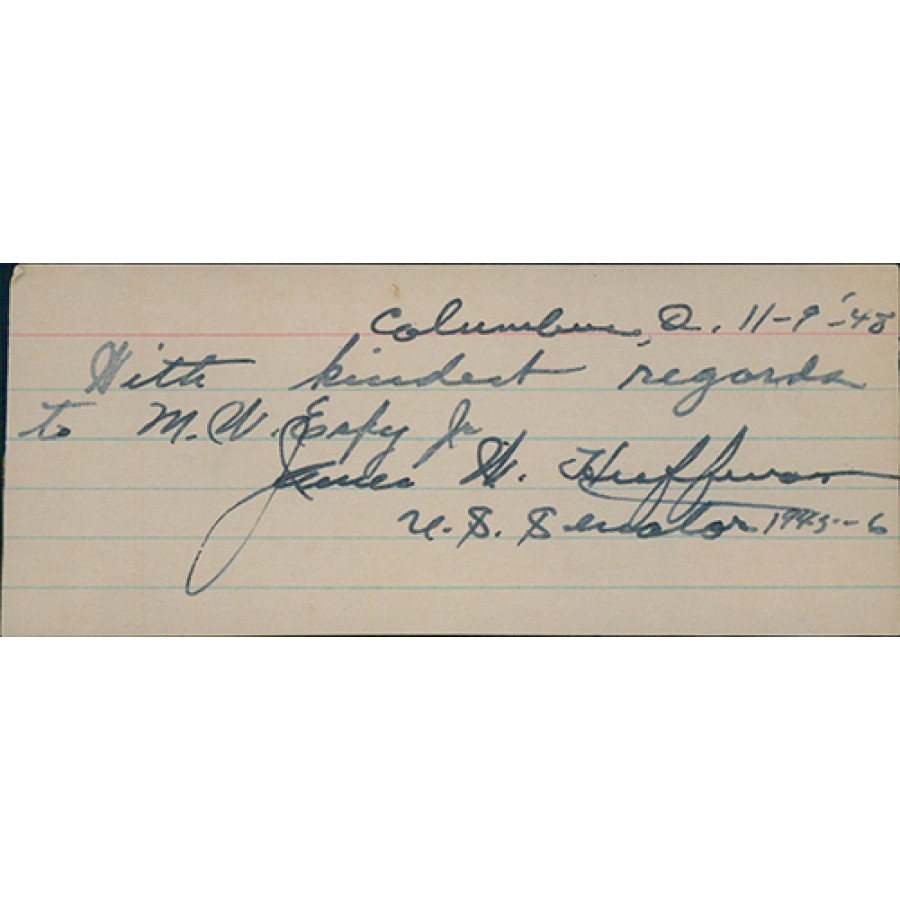 Columbus, O. 11-9-'48
With kindest regards
to M. W. Espy Jr
James W. Huffman
U. S. Senator 1945-6